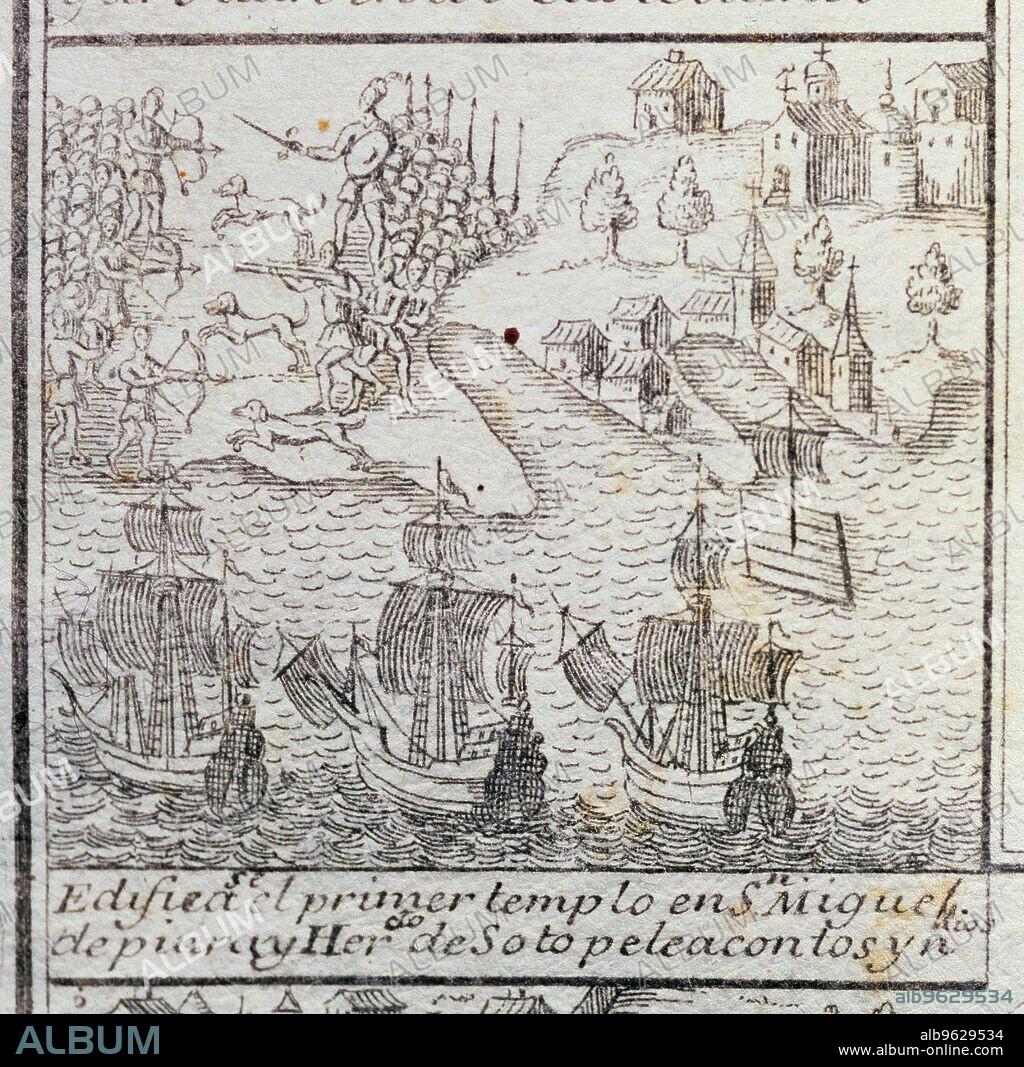 Edifica se el primer templo en Sn. Miguel.
de piura y Herdo de Soto pelea con los yndios
ALBUM
alb9629534
alb9629534
www.album-online.com